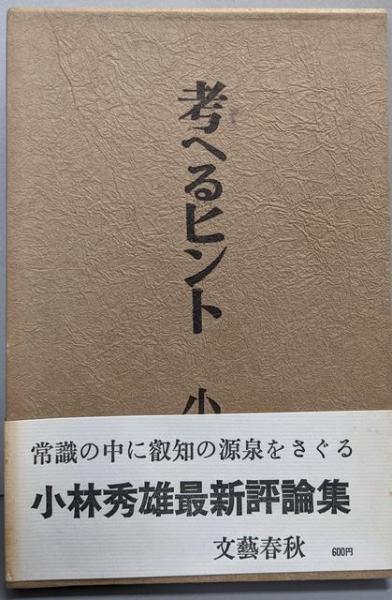 考へるヒント 小
常識の中に叡知の源泉をさぐる
小林秀雄最新評論集
文藝春秋 600円